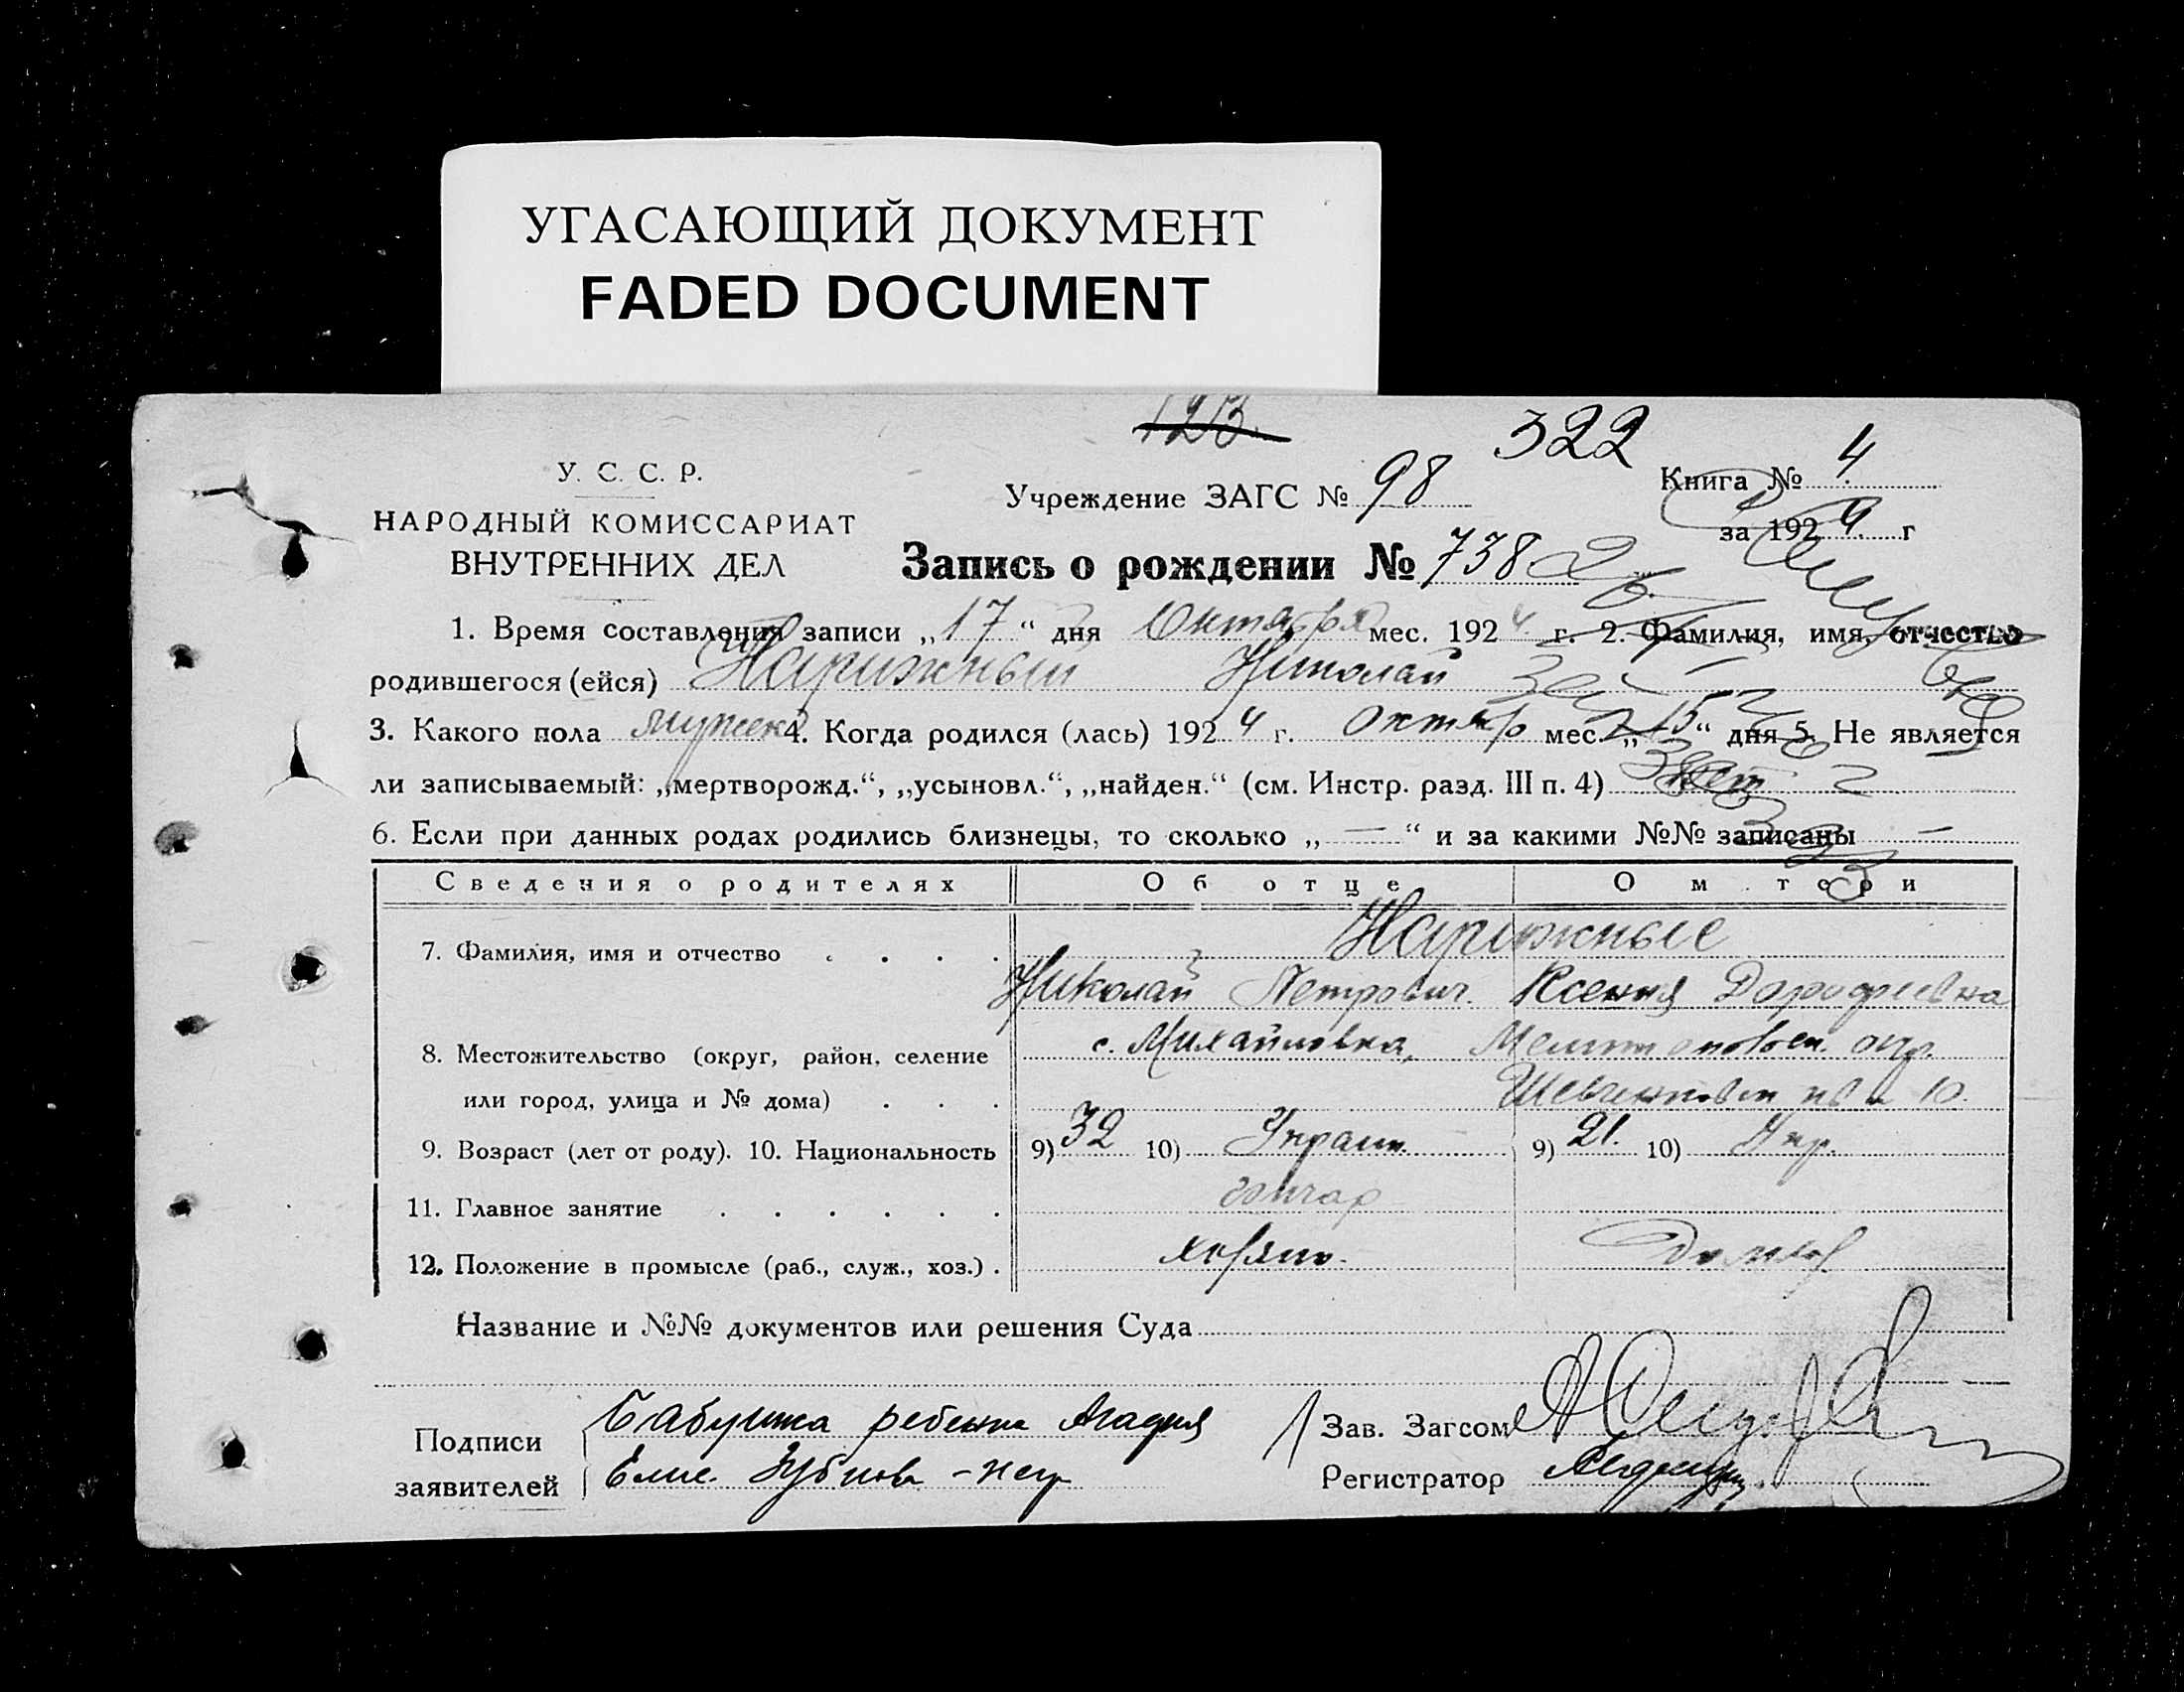 УГАСАЮЩИЙ ДОКУМЕНТ
FADED DOCUMENT
123
322
У. С. С. Р.
НАРОДНЫЙ КОМИССАРИАТ
ВНУТРЕННИХ ДЕЛ
Учреждение ЗАГС № 98
Книга № 4
за 1924 г
Запись о рождении № 738
1. Время составления записи „17“ дня Октября мес. 1924 г. 2. Фамилия, имя, отчество
родившегося (ейся) Нарижный Николай
3. Какого пола мужск 4. Когда родился (лась) 1924 г. октябр мес. „15“ дня 5. Не является
ли записываемый: „мертворожд.“, „усыновл.“, „найден.“ (см. Инстр. разд. III п. 4) нет
6. Если при данных родах родились близнецы, то сколько „—“ и за какими №№ записаны —
Сведения о родителях Об отце О м тери
Нарижные
7. Фамилия, имя и отчество
Николай Петрович Ксения Дорофеевна
8. Местожительство (округ, район, селение с. Михайловка, окр.
или город, улица и № дома) 10.
9. Возраст (лет от роду). 10. Национальность 9) 32 10) Украин. 9) 21. 10) Укр.
11. Главное занятие гончар
12. Положение в промысле (раб., служ., хоз.)
Название и №№ документов или решения Суда
Подписи заявителей
Бабушка ребенка
Зав. Загсом
Регистратор